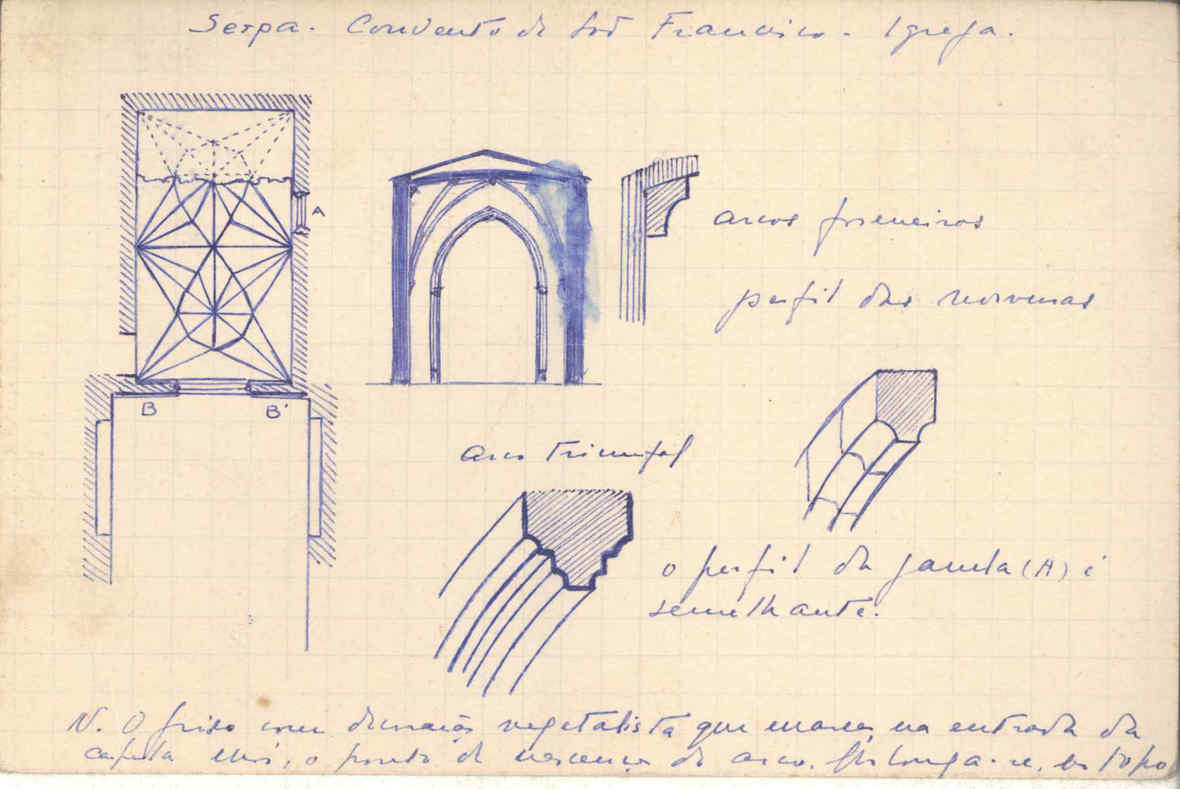 Serpa. Convento de São Francisco. Igreja.
A
arcos formeiros
perfil das nervuras
B B'
arco triunfal
o perfil da janela (A) é
semelhante.
N. O friso com decoração vegetalista que marca, na entrada da
capela mór, o ponto de nascença do arco, prolonga-se, no topo